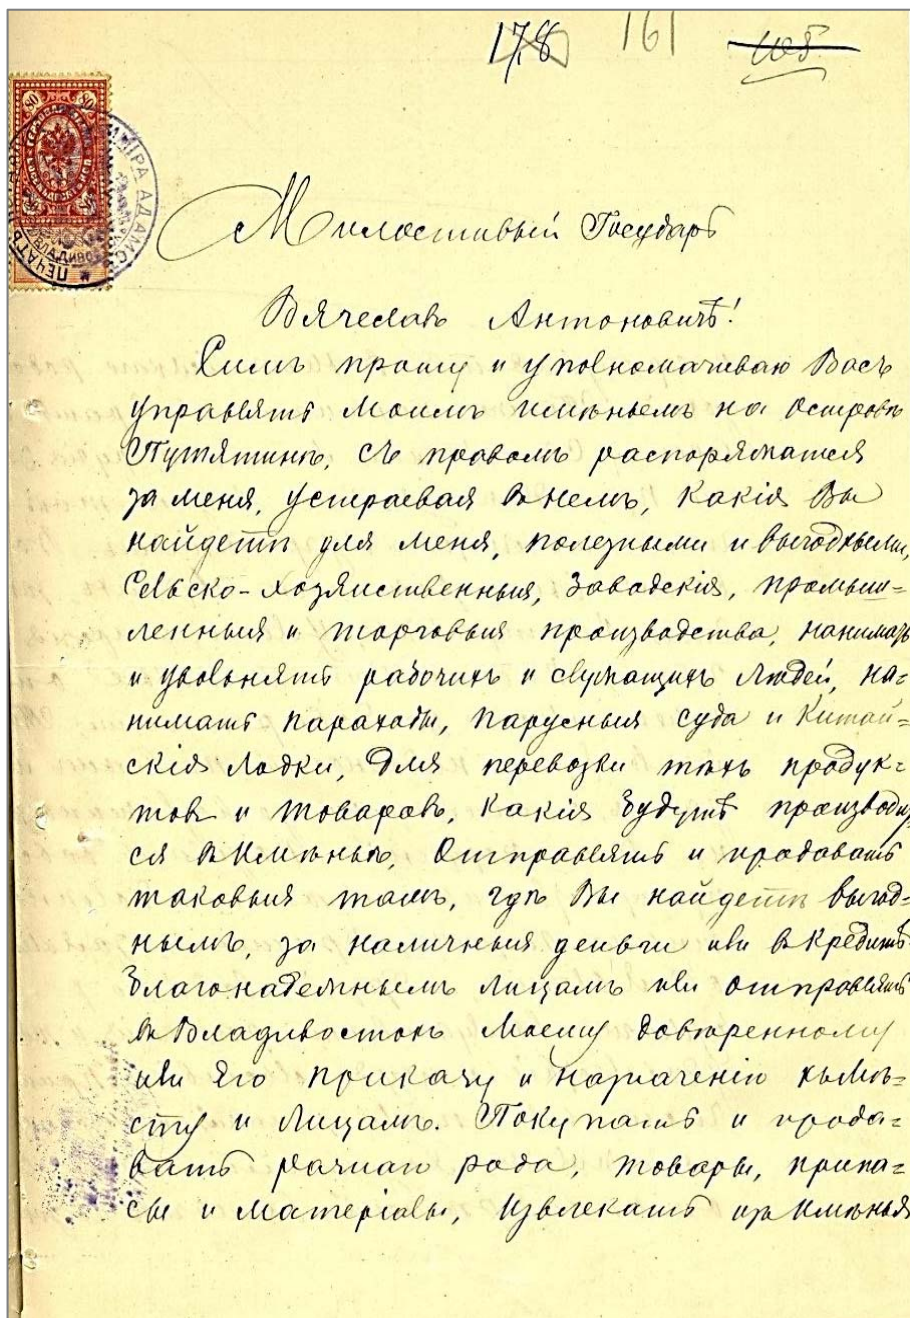 178 161
Милостивый Государь
Вячеславъ Антоновичъ!
Симъ прошу и уполномачеваю Васъ
управлять моимъ имѣньемъ на островѣ
Путятинѣ, съ правомъ распоряжатся
за меня, устраевая въ немъ, какія Вы
найдетѣ для меня, полезными и выгодными,
Сельско-хозяйственныя, Заводскія, промыш-
ленныя и торговыя производства, нанимать
и увольнять рабочихъ и служащихъ людей, на-
нимать параходы, парусныя суда и Китай-
скія лодки, для перевозки тѣхъ продук-
товъ и товаровъ, какія будутъ производит
ся въ имѣньѣ, Отправлять и продавать
таковыя тамъ, гдѣ Вы найдетѣ выгод-
нымъ, за наличныя деньги или въ кредитъ
благонадежнымъ лицамъ или отправлять
въ Владивостокъ моему довѣренному
или его приказу и назначенію къ мѣ-
сту и лицамъ. Покупать и прода-
вать разнаго рода, товары, припа-
сы и матеріалы, извлекать изъ имѣнья
80 80
ПЕЧАТЬ
МІРА АДАМО
ВЛАДИВО